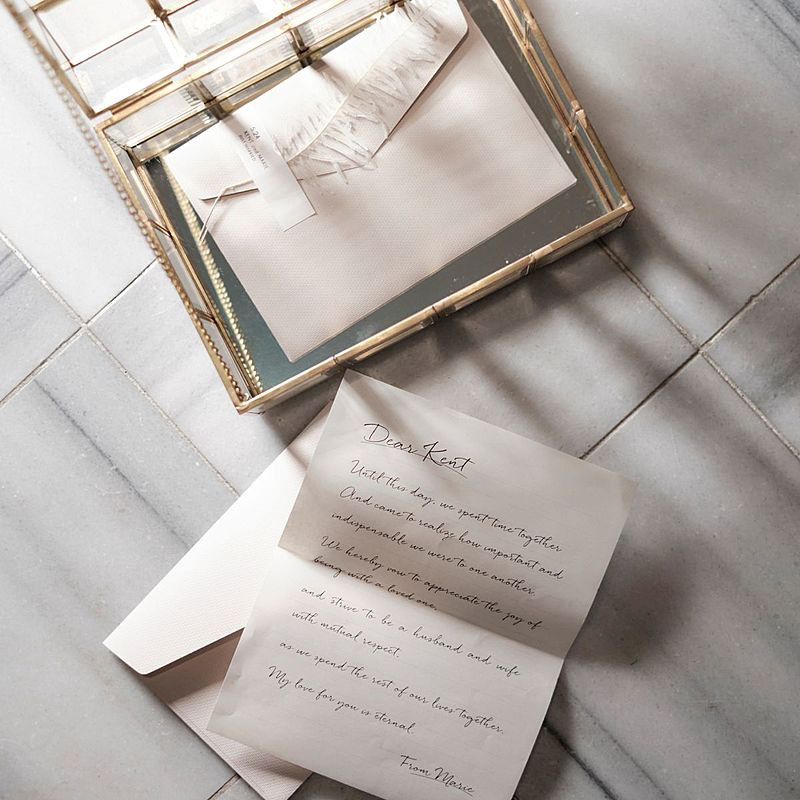 5.24
KENT and MARIE
Dear Kent
Until this day, we spent time together
And came to realize how important and
indispensable we were to one another.
We hereby vow to appreciate the joy of
being with a loved one,
and strive to be a husband and wife
with mutual respect,
as we spend the rest of our lives together.
My love for you is eternal.
From Marie